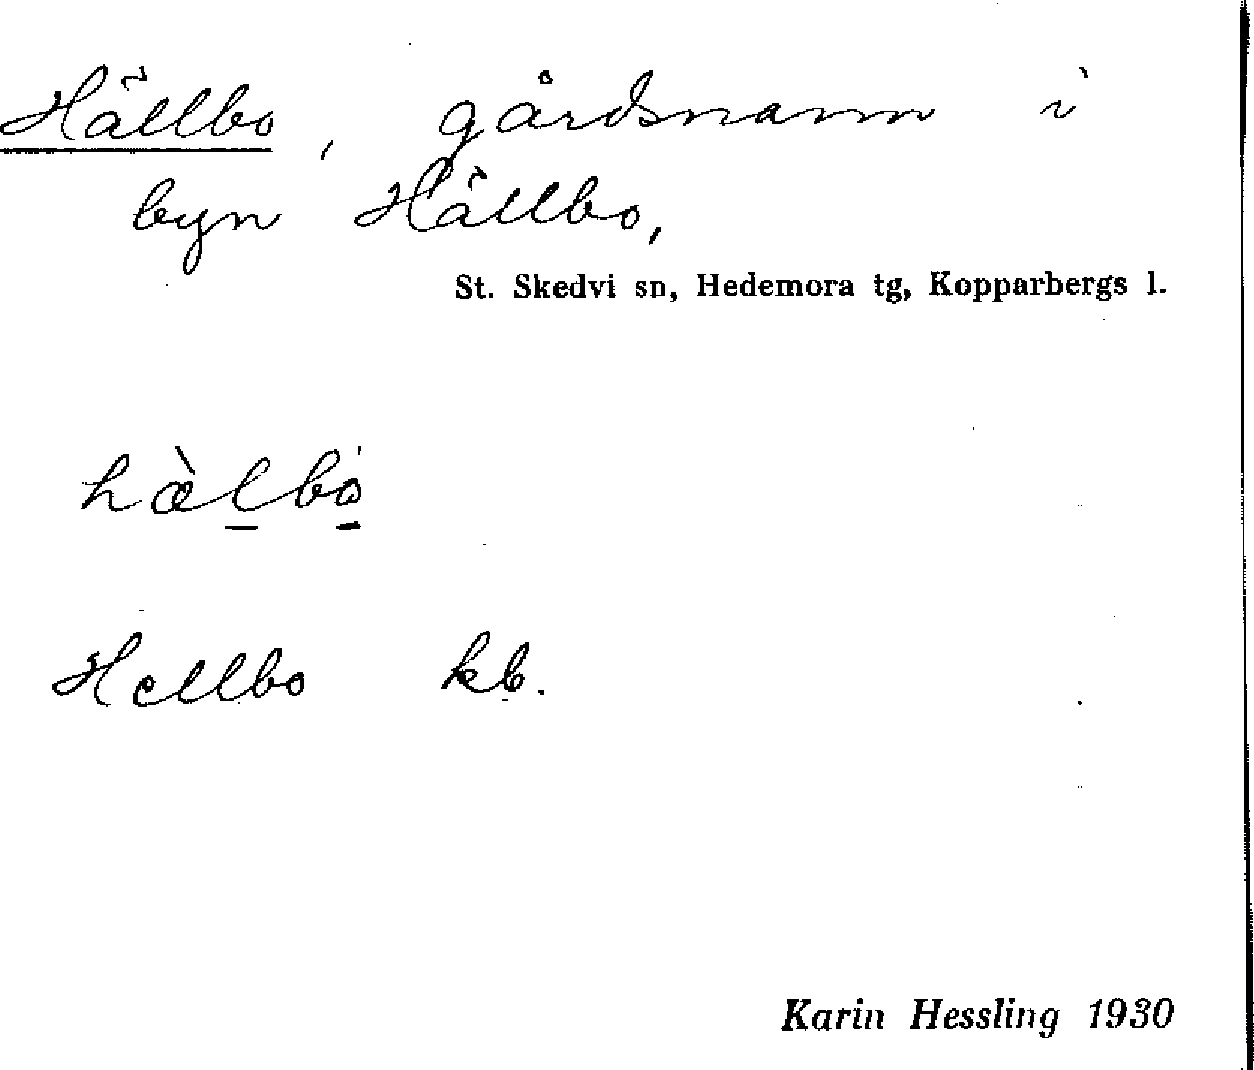 Hällbo, gårdsnamn i
byn Hällbo,
St. Skedvi sn, Hedemora tg, Kopparbergs l.
hæ̀l̠bo̠
Hellbo kb.
Karin Hessling 1930